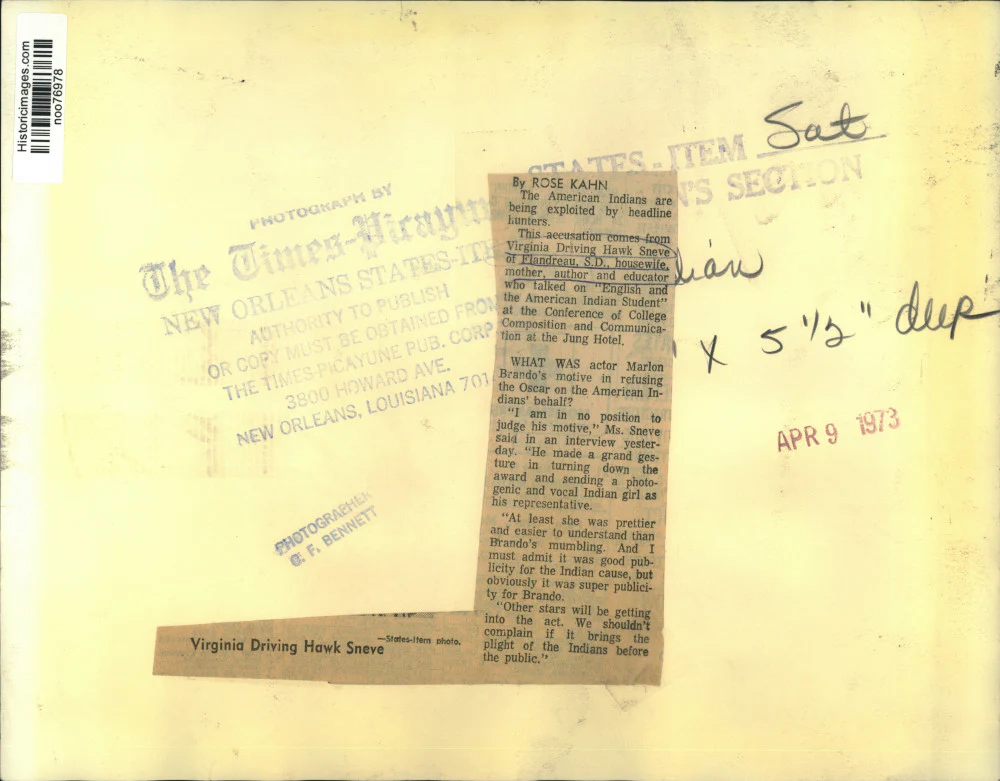 Historicimages.com
noo76978
Sat
STATES-ITEM
'S SECTION
PHOTOGRAPH BY
The Times-Picayune
NEW ORLEANS STATES-ITE
AUTHORITY TO PUBLISH
OR COPY MUST BE OBTAINED FROM
THE TIMES-PICAYUNE PUB. CORP
3800 HOWARD AVE.
NEW ORLEANS, LOUISIANA 701
dian
x 5 1/2" deep
APR 9 1973
PHOTOGRAPHER
C. F. BENNETT
By ROSE KAHN
The American Indians are
being exploited by headline
hunters.
This accusation comes from
Virginia Driving Hawk Sneve
of Flandreau, S.D., housewife,
mother, author and educator
who talked on "English and
the American Indian Student"
at the Conference of College
Composition and Communica-
tion at the Jung Hotel.
WHAT WAS actor Marlon
Brando's motive in refusing
the Oscar on the American In-
dians' behalf?
"I am in no position to
judge his motive," Ms. Sneve
said in an interview yester-
day. "He made a grand ges-
ture in turning down the
award and sending a photo-
genic and vocal Indian girl as
his representative.
"At least she was prettier
and easier to understand than
Brando's mumbling. And I
must admit it was good pub-
licity for the Indian cause, but
obviously it was super publici-
ty for Brando.
"Other stars will be getting
into the act. We shouldn't
complain if it brings the
plight of the Indians before
the public."
Virginia Driving Hawk Sneve
—States-Item photo.